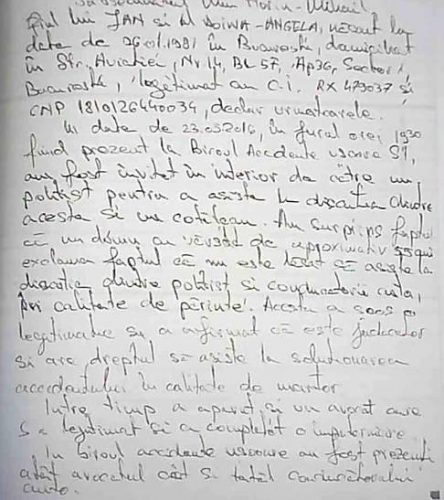 Mihail
fiul lui JAN și al DOINA-ANGELA, născut la
data de 26.01.1981 în București, domiciliat
în Str. Aviației, Nr 14, BL 5F, Ap36, Sector 1,
București, legitimat cu C.i. RX 473037 și
CNP 1810126440034, declar următoarele.
În data de 23.03.2016, în jurul orei 1930
fiind prezent la Biroul Accidente ușoare S1,
am fost invitat în interior de către un
polițist pentru a asista la discuția dintre
acesta și un cetățean. Am surprins faptul
că un domn cu vârstă de aproximativ
exclama faptul că nu este lăsat să asiste la
discuția dintre polițist și conducătorul auto,
în calitate de părinte. Acesta a scos o
legitimație și a afirmat că este judecător
și are dreptul să asiste la soluționarea
accidentului în calitate de martor.
Între timp a apărut și un avocat care
s-a legitimat și a completat o împuternicire.
În biroul accidente ușoare au fost prezenți
atât avocatul cât și tatăl conducătorului
auto.